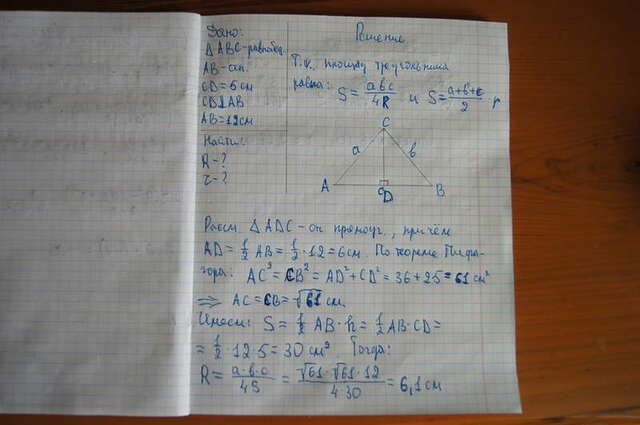 Дано:
Δ ABC - равнобед.
AB - осн.
CD = 5 см
CD ⊥ AB
AB = 12 см
Найти:
R - ?
r - ?
Решение
Т.к. площадь треугольника
равна: S = abc/4R и S = (a+b+c)/2 r
C
a b
A D B
c
Рассм. Δ ADC - он прямоуг., причём
AD = 1/2 AB = 1/2 · 12 = 6 см. По теореме Пифа-
гора: AC² = CB² = AD² + CD² = 36 + 25 = 61 см²
⇒ AC = CB = √61 см.
Имеем: S = 1/2 AB · h = 1/2 AB · CD =
= 1/2 · 12 · 5 = 30 см². Тогда:
R = a·b·c/4S = √61·√61·12/4·30 = 6,1 см